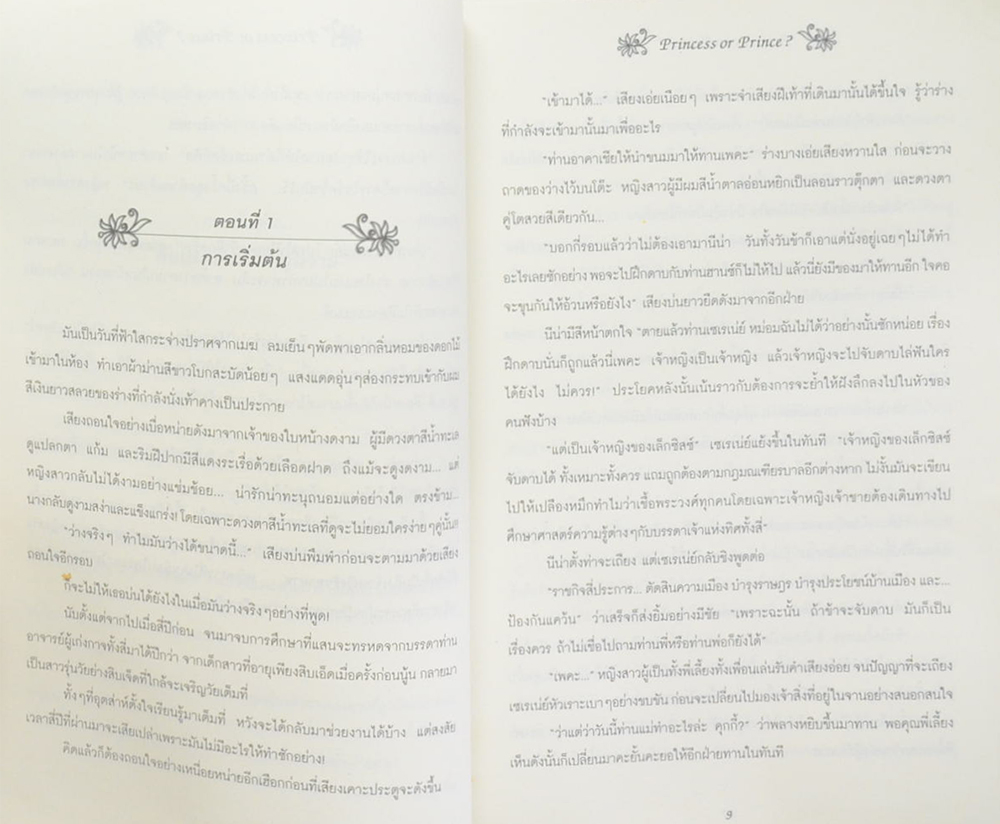 ตอนที่ 1
การเริ่มต้น
มันเป็นวันที่ฟ้าใสกระจ่างปราศจากเมฆ ลมเย็นๆพัดพาเอากลิ่นหอมของดอกไม้
เข้ามาในห้อง ทำเอาผ้าม่านสีขาวโบกสะบัดน้อยๆ แสงแดดอุ่นๆส่องกระทบเข้ากับผม
สีเงินยาวสลวยของร่างที่กำลังนั่งเท้าคางเป็นประกาย
เสียงถอนใจอย่างเบื่อหน่ายดังมาจากเจ้าของใบหน้างดงาม ผู้มีดวงตาสีน้ำทะเล
ดูแปลกตา แก้ม และริมฝีปากมีสีแดงระเรื่อด้วยเลือดฝาด ถึงแม้จะดูงดงาม... แต่
หญิงสาวกลับไม่ได้งามอย่างแช่มช้อย... น่ารักน่าทะนุถนอมแต่อย่างใด ตรงข้าม...
นางกลับดูงามสง่าและแข็งแกร่ง! โดยเฉพาะดวงตาสีน้ำทะเลที่ดูจะไม่ยอมใครง่ายๆคู่นั้น!!
"ว่างจริงๆ ทำไมมันว่างได้ขนาดนี้..." เสียงบ่นพึมพำก่อนจะตามมาด้วยเสียง
ถอนใจอีกรอบ
ก็จะไม่ให้เธอบ่นได้ยังไงในเมื่อมันว่างจริงๆอย่างที่พูด!
นับตั้งแต่จากไปเมื่อสี่ปีก่อน จนมาจบการศึกษาที่แสนจะทรหดจากบรรดาท่าน
อาจารย์ผู้เก่งกาจทั้งสี่มาได้ปีกว่า จากเด็กสาวที่อายุเพียงสิบเอ็ดเมื่อครั้งก่อนนู้น กลายมา
เป็นสาวรุ่นวัยย่างสิบเจ็ดที่ใกล้จะเจริญวัยเต็มที่
ทั้งๆที่อุตส่าห์ตั้งใจเรียนรู้มาเต็มที่ หวังจะได้กลับมาช่วยงานได้บ้าง แต่สงสัย
เวลาสี่ปีที่ผ่านมาจะเสียเปล่าเพราะมันไม่มีอะไรให้ทำซักอย่าง!
คิดแล้วก็ต้องถอนใจอย่างเหนื่อยหน่ายอีกเฮือกก่อนที่เสียงเคาะประตูจะดังขึ้น
Princess or Prince ?
"เข้ามาได้..." เสียงเอ่ยเนือยๆ เพราะจำเสียงฝีเท้าที่เดินมานั้นได้ขึ้นใจ รู้ว่าร่าง
ที่กำลังจะเข้ามานั้นมาเพื่ออะไร
"ท่านอาคาเซียให้นำขนมมาให้ทานเพคะ" ร่างบางเอ่ยเสียงหวานใส ก่อนจะวาง
ถาดของว่างไว้บนโต๊ะ หญิงสาวผู้มีผมสีน้ำตาลอ่อนหยิกเป็นลอนราวตุ๊กตา และดวงตา
คู่โตสวยสีเดียวกัน...
"บอกกี่รอบแล้วว่าไม่ต้องเอามานีน่า วันทั้งวันข้าก็เอาแต่นั่งอยู่เฉยๆไม่ได้ทำ
อะไรเลยซักอย่าง พอจะไปฝึกดาบกับท่านฮานซ์ก็ไม่ให้ไป แล้วนี่ยังมีของมาให้ทานอีก ใจคอ
จะขุนกันให้อ้วนหรือยังไง" เสียงบ่นยาวยืดดังมาจากอีกฝ่าย
นีน่ามีสีหน้าตกใจ "ตายแล้วท่านเซเรเน่ย์ หม่อมฉันไม่ได้ว่าอย่างนั้นซักหน่อย เรื่อง
ฝึกดาบนั่นก็ถูกแล้วนี่เพคะ เจ้าหญิงเป็นเจ้าหญิง แล้วเจ้าหญิงจะไปจับดาบไล่ฟันใคร
ได้ยังไง ไม่ควร!" ประโยคหลังนั้นเน้นราวกับต้องการจะย้ำให้ฝังลึกลงไปในหัวของ
คนฟังบ้าง
"แต่เป็นเจ้าหญิงของเล็กซิสซ์" เซเรเน่ย์แย้งขึ้นในทันที "เจ้าหญิงของเล็กซิสซ์
จับดาบได้ ทั้งเหมาะทั้งควร แถมถูกต้องตามกฎมณเฑียรบาลอีกต่างหาก ไม่งั้นมันจะเขียน
ไปให้เปลืองหมึกทำไมว่าเชื้อพระวงศ์ทุกคนโดยเฉพาะเจ้าหญิงเจ้าชายต้องเดินทางไป
ศึกษาศาสตร์ความรู้ต่างๆกับบรรดาเจ้าแห่งทิศทั้งสี่"
นีน่าตั้งท่าจะเถียง แต่เซเรเน่ย์กลับชิงพูดต่อ
"ราชกิจสี่ประการ... ตัดสินความเมือง บำรุงราษฎร บำรุงประโยชน์บ้านเมือง และ...
ป้องกันแคว้น" ว่าเสร็จก็ส่งยิ้มอย่างมีชัย "เพราะฉะนั้น ถ้าข้าจะจับดาบ มันก็เป็น
เรื่องควร ถ้าไม่เชื่อไปถามท่านพี่หรือท่านพ่อก็ยังได้"
"เพคะ..." หญิงสาวผู้เป็นทั้งพี่เลี้ยงทั้งเพื่อนเล่นรับคำเสียงอ่อย จนปัญญาที่จะเถียง
เซเรเน่ย์หัวเราะเบาๆอย่างขบขัน ก่อนจะเปลี่ยนไปมองเจ้าสิ่งที่อยู่ในจานอย่างสนอกสนใจ
"ว่าแต่ว่าวันนี้ท่านแม่ทำอะไรล่ะ คุกกี้?" ว่าพลางหยิบขึ้นมาทาน พอคุณพี่เลี้ยง
เห็นดังนั้นก็เปลี่ยนมาคะยั้นคะยอให้อีกฝ่ายทานในทันที
9